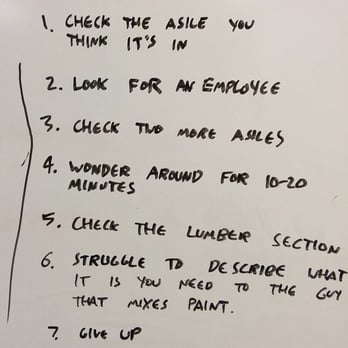 1. CHECK THE ASILE YOU
THINK IT'S IN
2. LOOK FOR AN EMPLOYEE
3. CHECK TWO MORE ASILES
4. WONDER AROUND FOR 10-20
MINUTES
5. CHECK THE LUMBER SECTION
6. STRUGGLE TO DESCRIBE WHAT
IT IS YOU NEED TO THE GUY
THAT MIXES PAINT.
7. GIVE UP